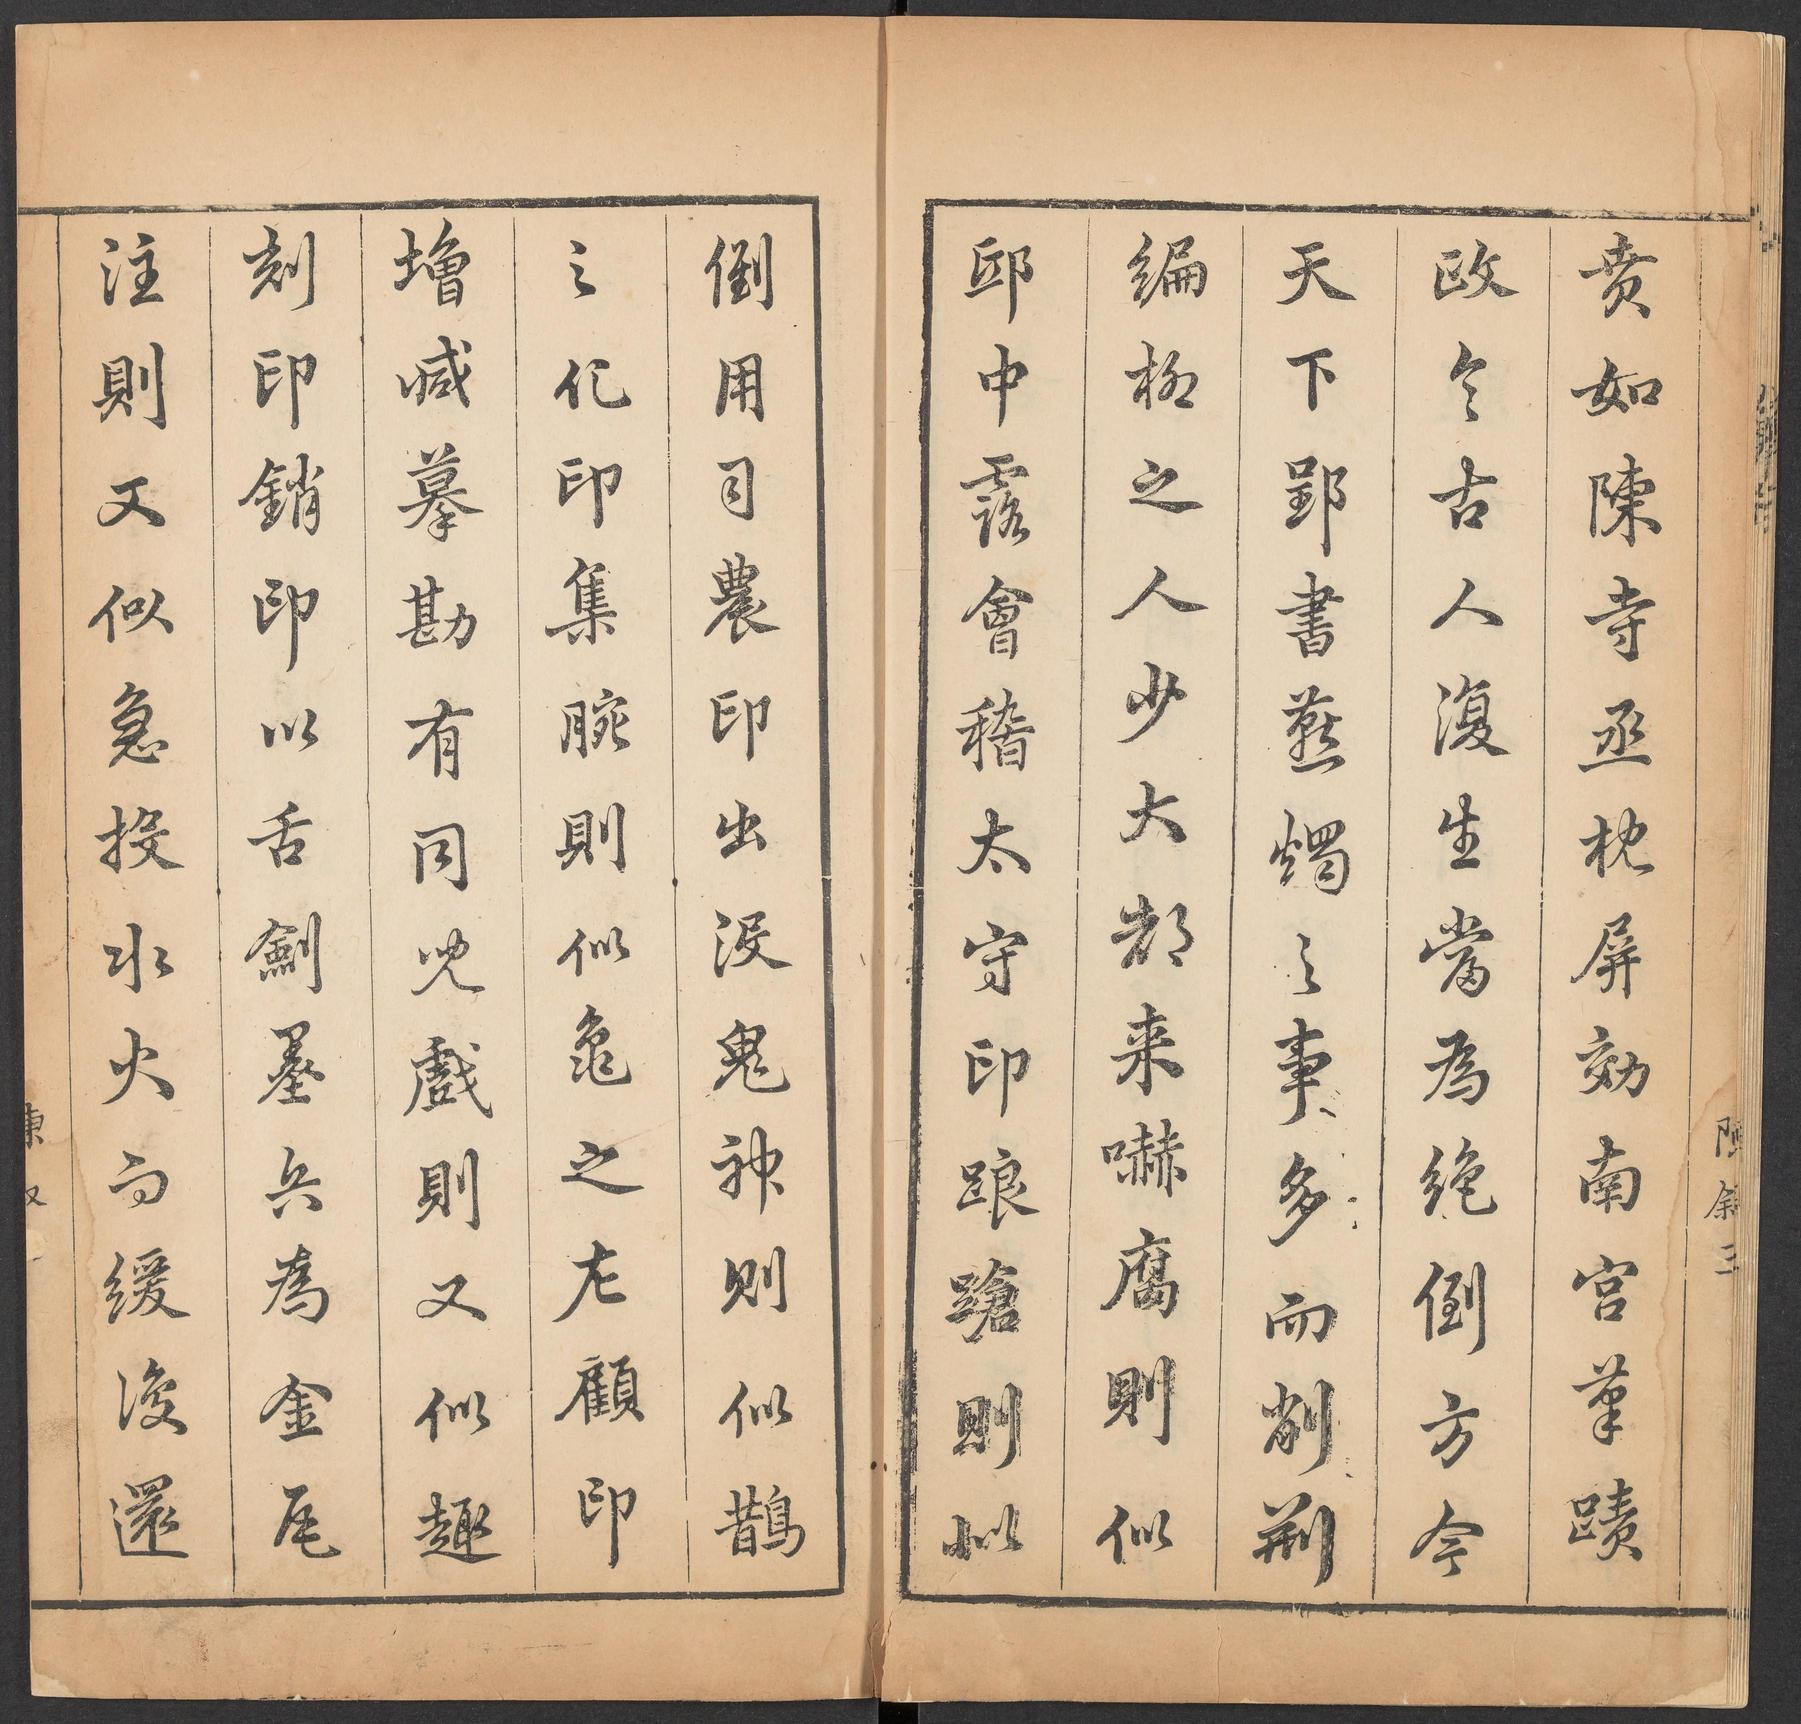 賁如陳寺丞枕屏効南宮筆蹟
政令古人復生當為絶倒方今
天下郢書燕燭之事多而削荊
編柳之人少大都来嚇腐則似
邱中露會稽太守印踉蹌則似
倒用司農印出沒鬼神則似鵲
之化印集腕則似龜之左顧印
增減摹勘有同児戲則又似趣
刻印銷印以舌劍墨兵為金卮
注則又似急投水火而緩後還
陳叙三